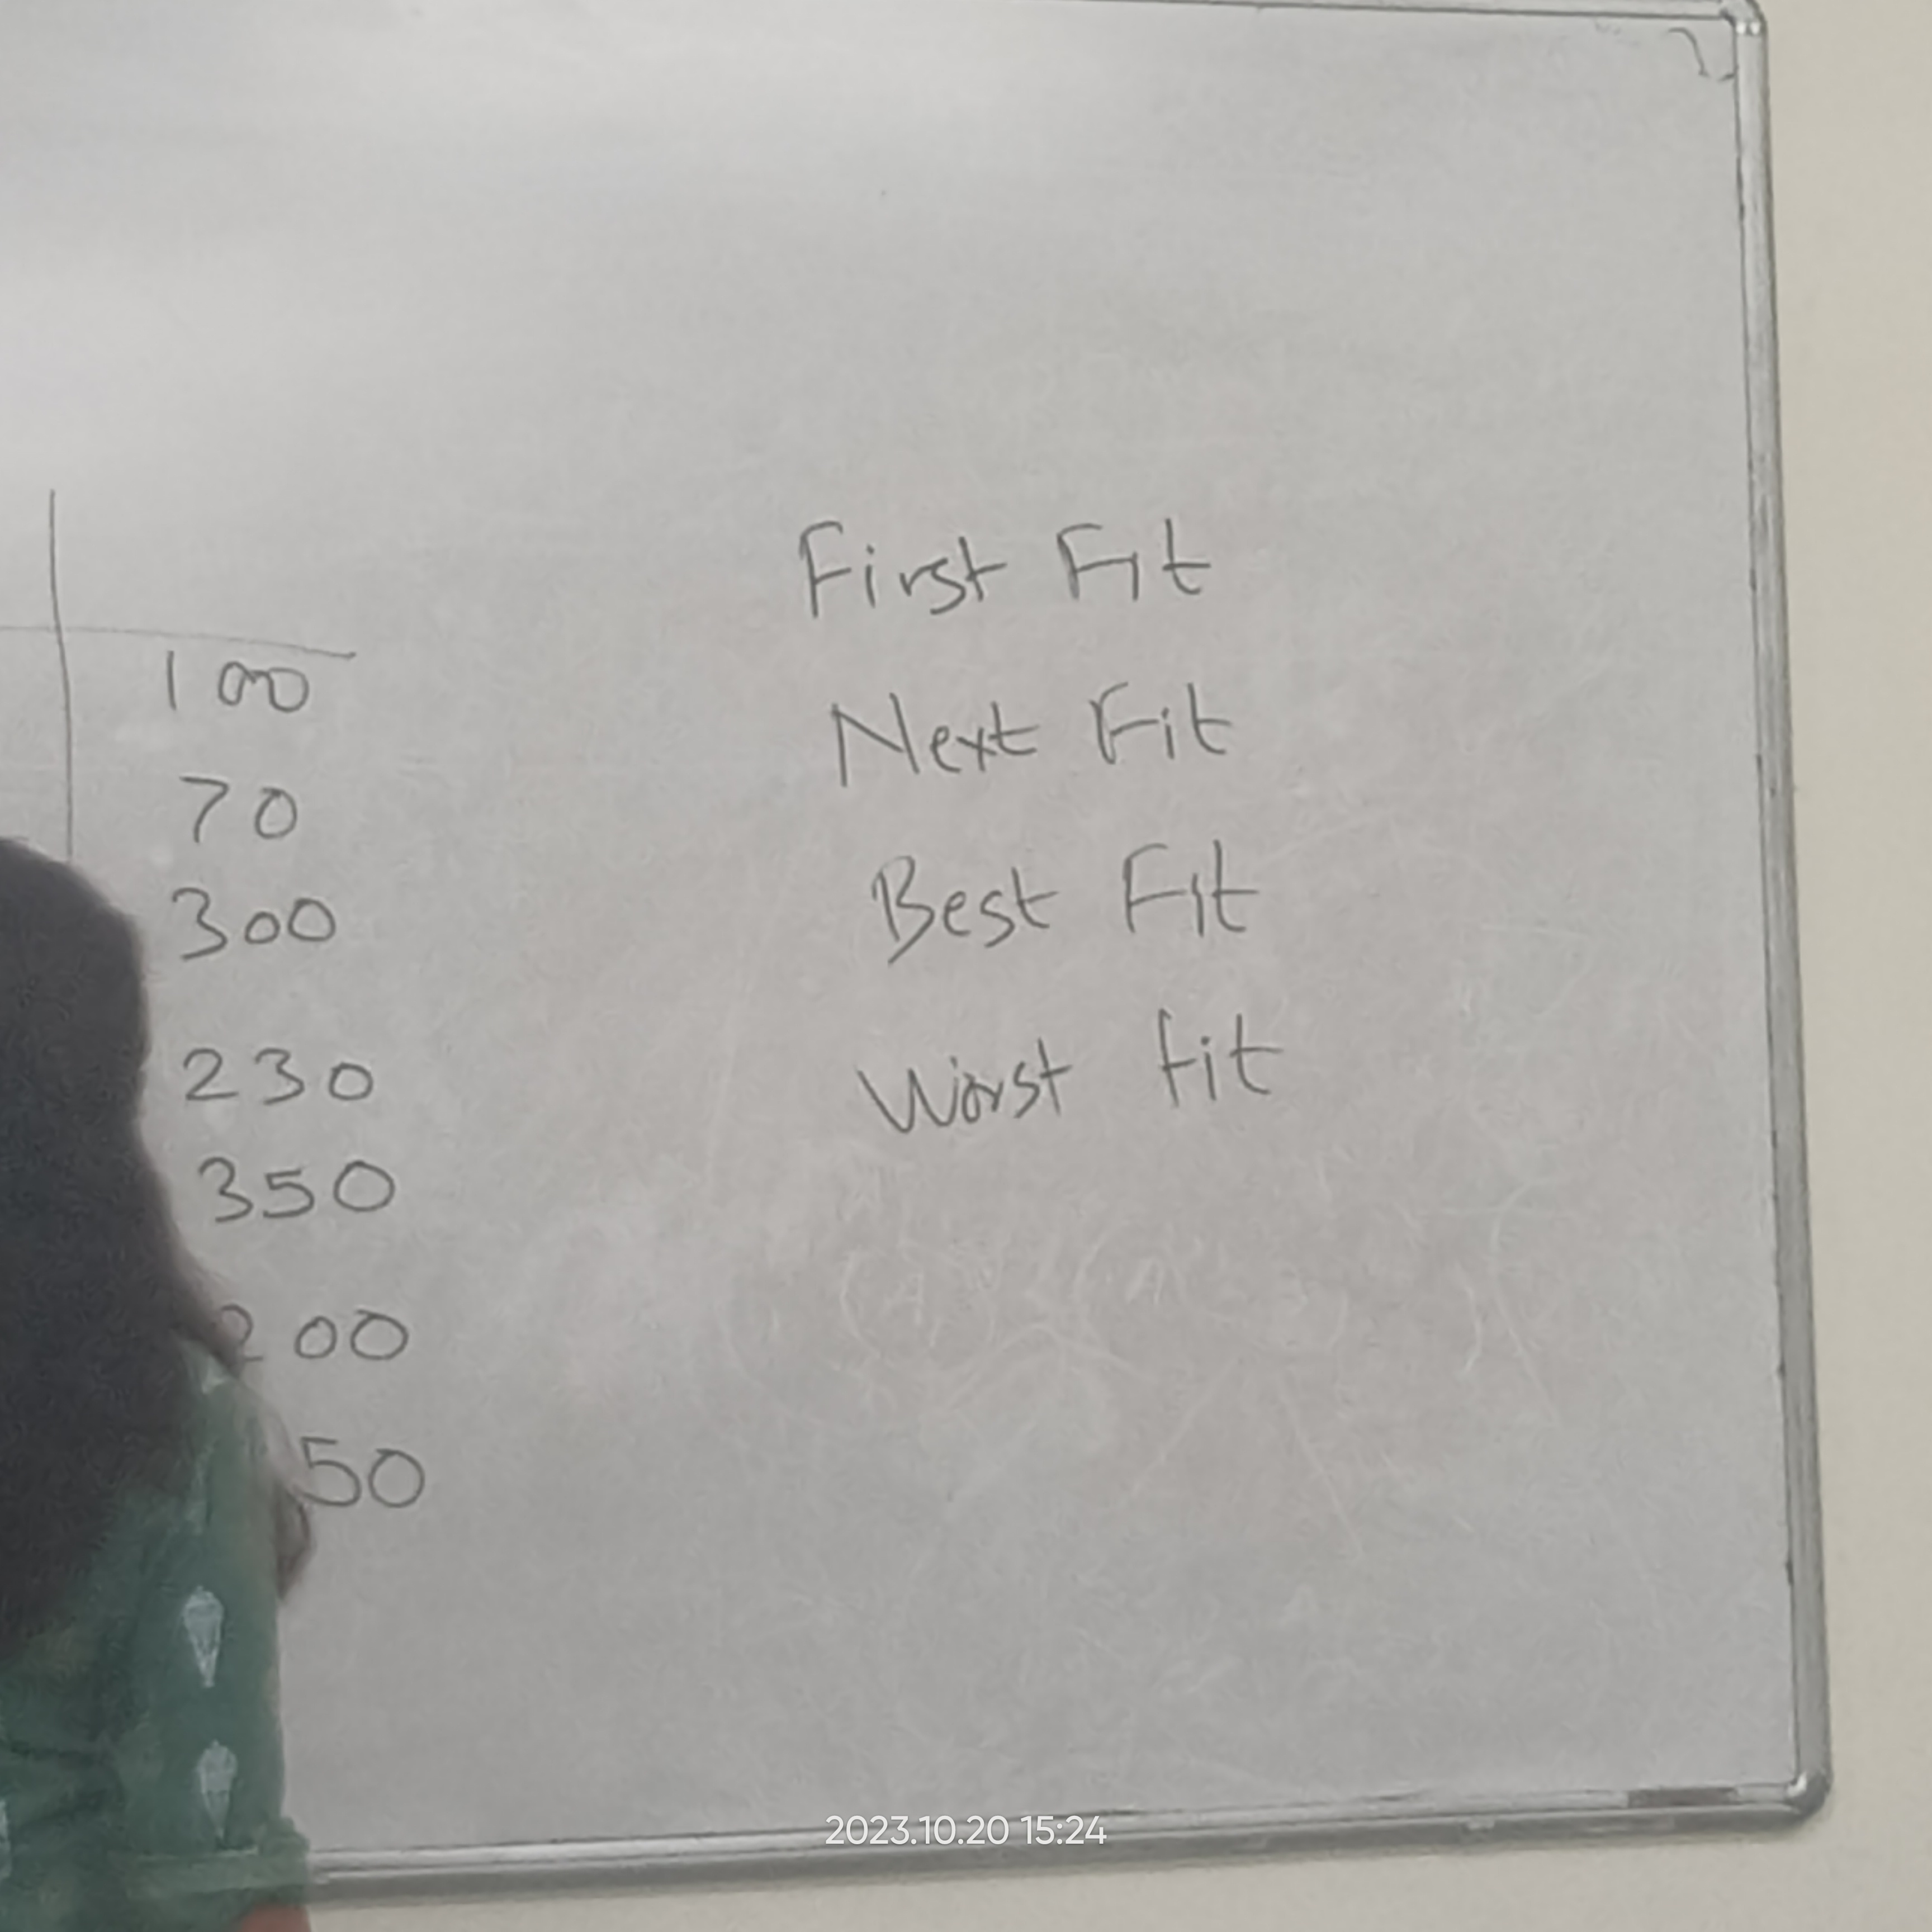 100
70
300
230
350
200
50
First Fit
Next Fit
Best Fit
Worst fit
2023.10.20 15:24